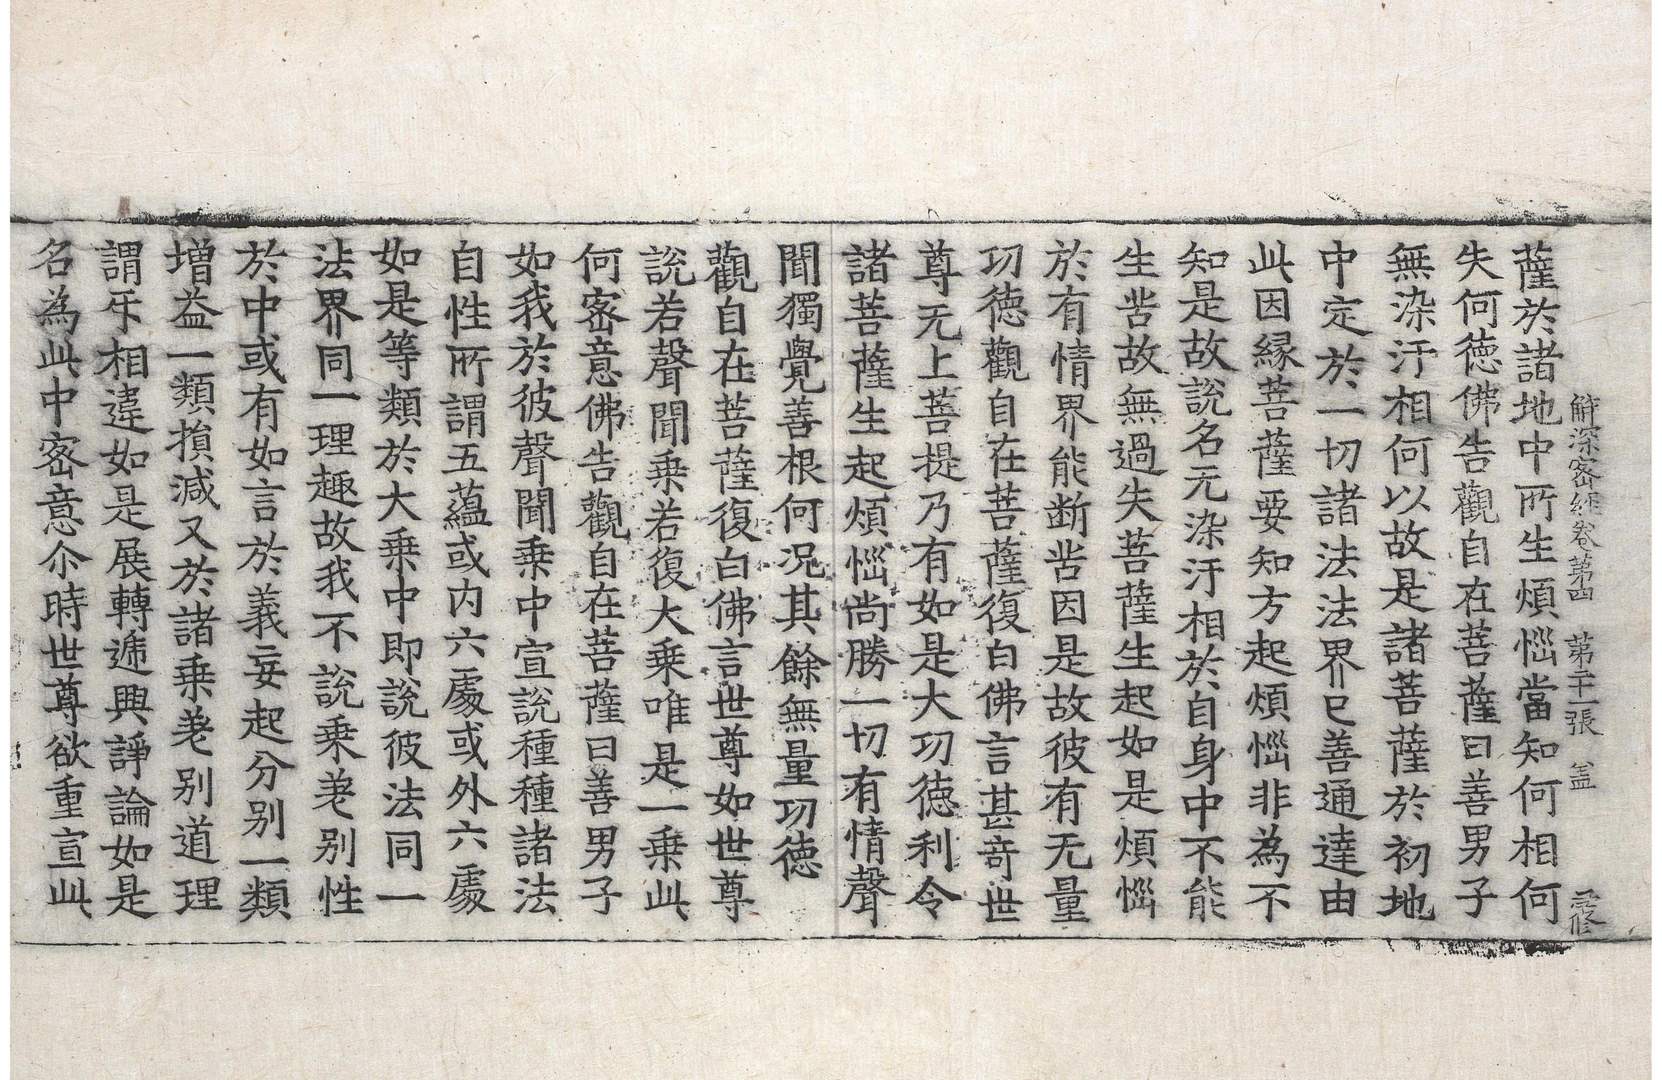 解深密經卷第四　第二十一張　盖
薩於諸地中所生煩惱當知何相何
失何徳佛告觀自在菩薩曰善男子
無染汙相何以故是諸菩薩於初地
中定於一切諸法法界已善通達由
此因緣菩薩要知方起煩惱非為不
知是故說名无染汙相於自身中不能
生苦故無過失菩薩生起如是煩惱
於有情界能断苦因是故彼有无量
功德觀自在菩薩復白佛言甚奇世
尊无上菩提乃有如是大功德利令
諸菩薩生起煩惱尚勝一切有情聲
聞獨覺善根何况其餘無量功德
觀自在菩薩復白佛言世尊如世尊
說若聲聞乗若復大乗唯是一乗此
何密意佛告觀自在菩薩曰善男子
如我於彼聲聞乗中宣說種種諸法
自性所謂五蘊或内六處或外六處
如是等類於大乗中即說彼法同一
法界同一理趣故我不說乗差别性
於中或有如言於義妄起分别一類
增益一類損減又於諸乗差别道理
謂乐相違如是展轉遞興諍論如是
名為此中密意尒時世尊欲重宣此